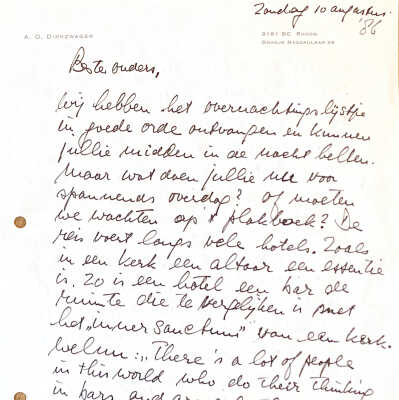 Zondag 10 augustus
'86
A. O. Dirkzwager
3161 BC Rhoon
Oranje Nassaulaan 26
Beste ouders,
Wij hebben het overnachtingslijstje
in goede orde ontvangen en kunnen
jullie midden in de nacht bellen.
Maar wat doen jullie nu voor
spannends overdag? Of moeten
we wachten op 't plakboek? De
reis voert langs vele hotels. Zoals
in een kerk een altaar een essentie
is, zo is een hotel een bar de
ruimte die te vergelijken is met
het "inner sanctum" van een kerk.
Welnu: "There's a lot of people
in this world who do their thinking
in bars and